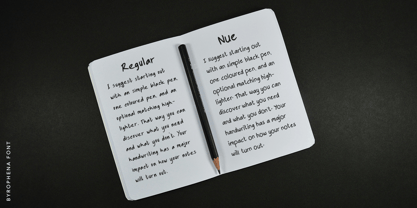 Regular
I suggest starting out
with an simple black pen,
one coloured pen, and an
optional matching high-
lighter. That way you can
discover what you need
and what you don't. Your
handwriting has a major
impact on how your notes
will turn out.
Nue
I suggest starting out
with an simple black pen,
one coloured pen, and an
optional matching high-
lighter. That way you can
discover what you need
and what you don't. Your
handwriting has a major
impact on how your notes
will turn out.
BYROPHENA FONT